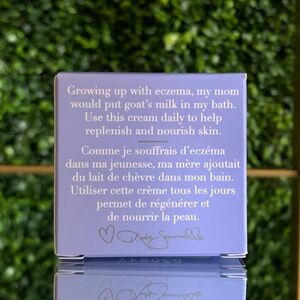 Growing up with eczema, my mom
would put goat's milk in my bath.
Use this cream daily to help
replenish and nourish skin.
Comme je souffrais d'eczéma
dans ma jeunesse, ma mère ajoutait
du lait de chèvre dans mon bain.
Utiliser cette crème tous les jours
permet de régénérer et
de nourrir la peau.